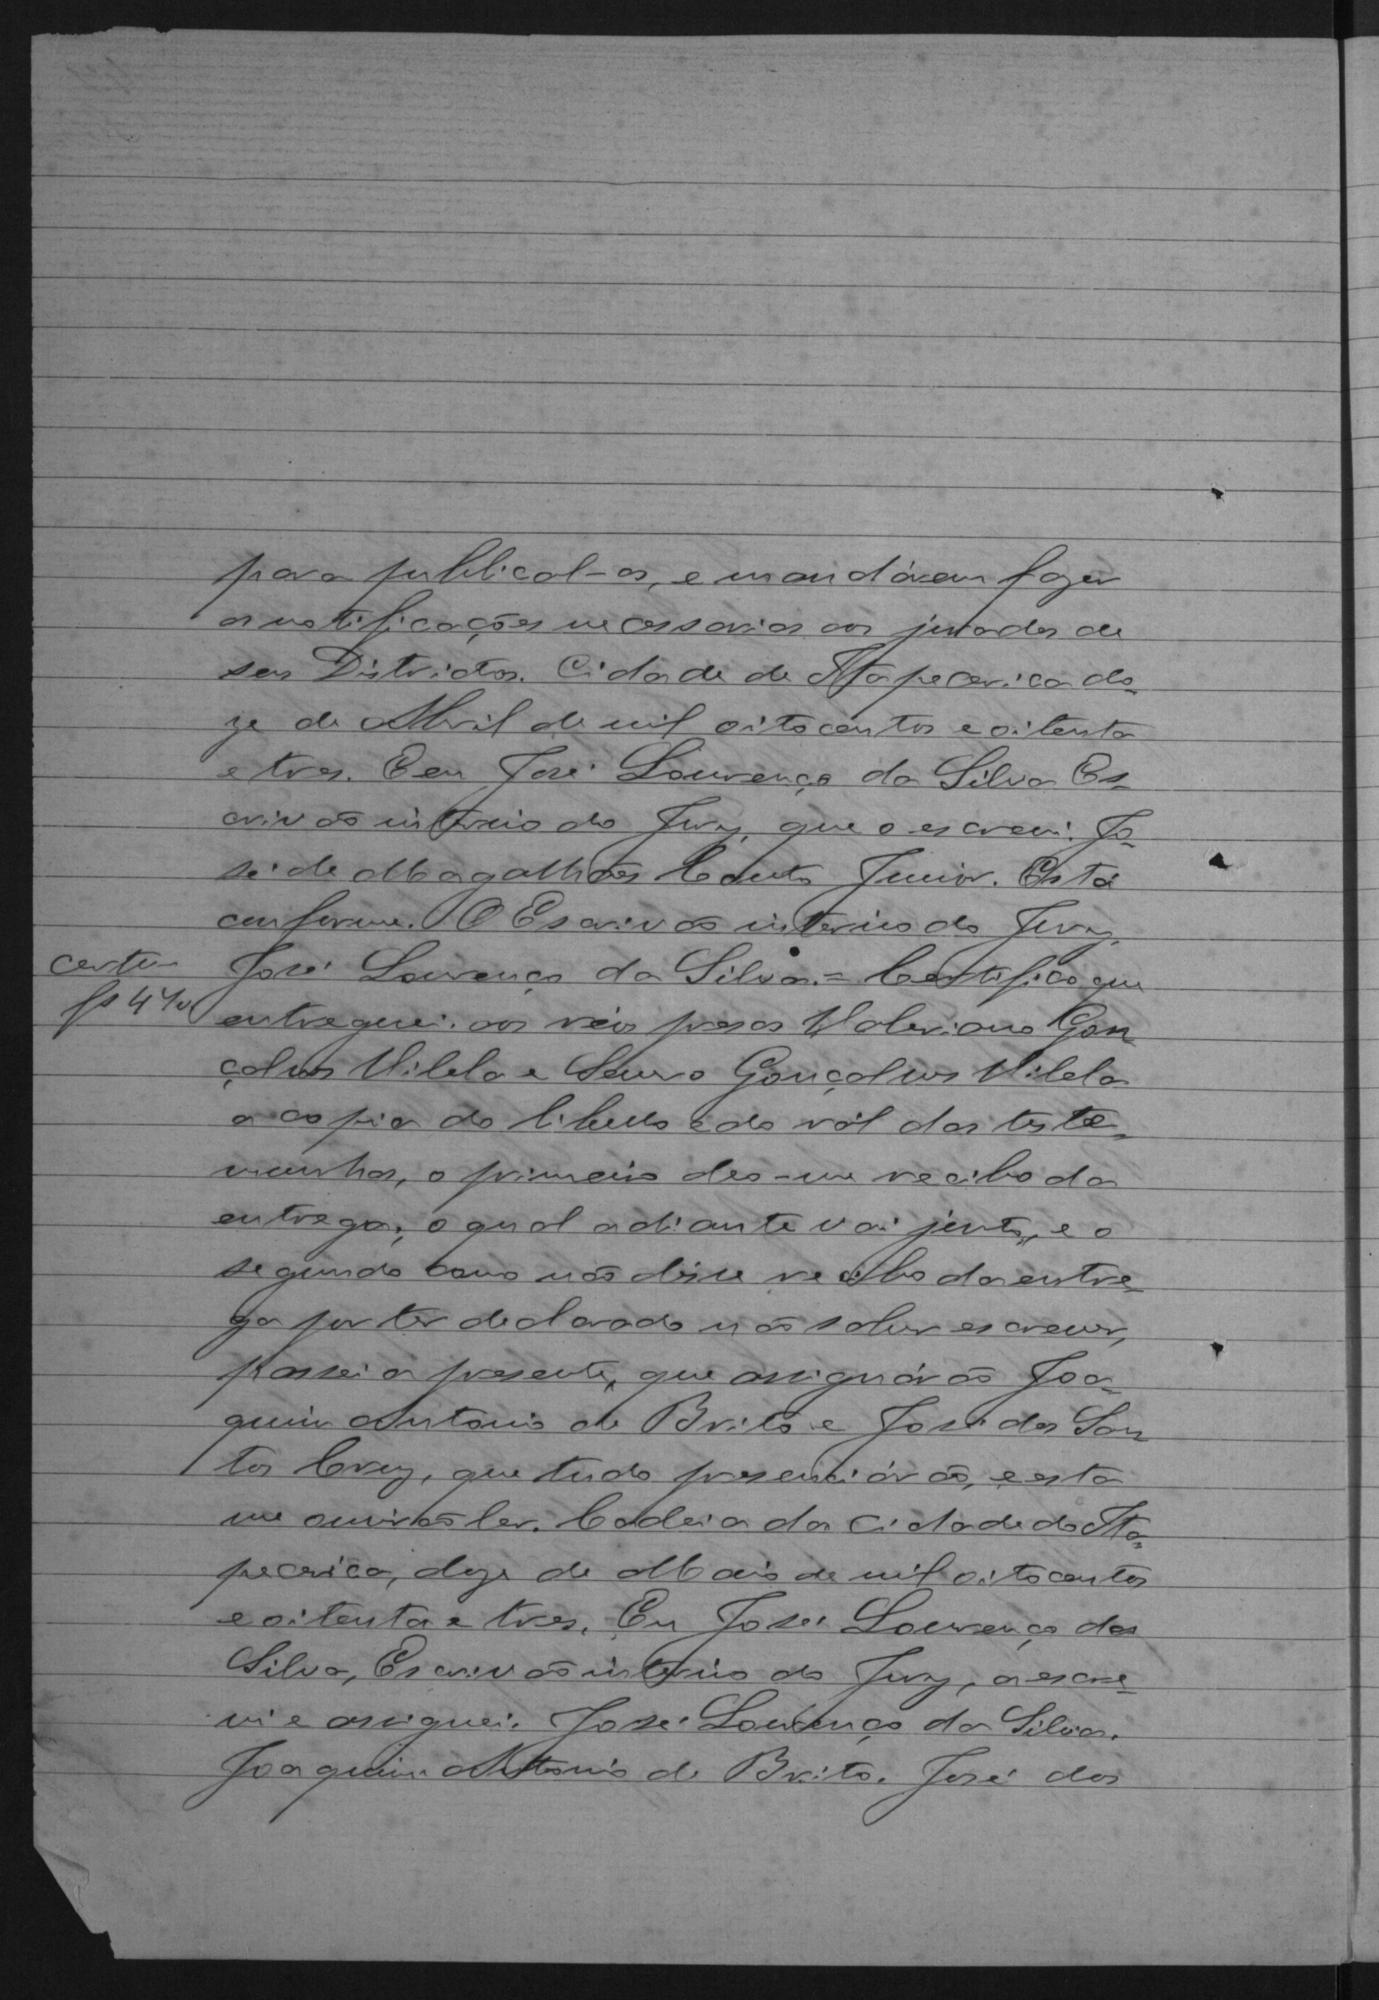 para publical-os, e mandárem fazer
as notificações necessarias aos jurados de
seus Districtos. Cidade de Itapecerica do-
ze de Abril de mil oitocentos e oitenta
e tres. E eu José Lourenço da Silva Es-
crivão interino do Jury, que o escrevi. Jo-
sé de Magalhães Couto Junior. Está
conforme. O Escrivão interino do Jury,
José Lourenço da Silva.= Certifico que
entreguei aos réos presos Valeriano Gon
çalves Vilela e Lauro Gonçalves Vilela
a copia do libello e do ról das teste-
munhas, o primeiro deo-me recibo da
entrega, o qual adiante vai junto, e o
segundo como não désse recibo da entre-
ga por ter declarado não saber escrever,
passei a presente, que assignárão Joa-
quim Antonio de Brito e José dos San
tos Cruz, que tudo presenciárão, e esta
me ouvirão ler. Cadeia da Cidade do Ita-
pecerica, doze de Maio de mil oitocentos
e oitenta e tres. Eu José Lourenço da
Silva, Escrivão interino do Jury, a escre-
vi e assignei. José Lourenço da Silva.
Joaquim Antonio de Brito. José dos
certm
fs 47v